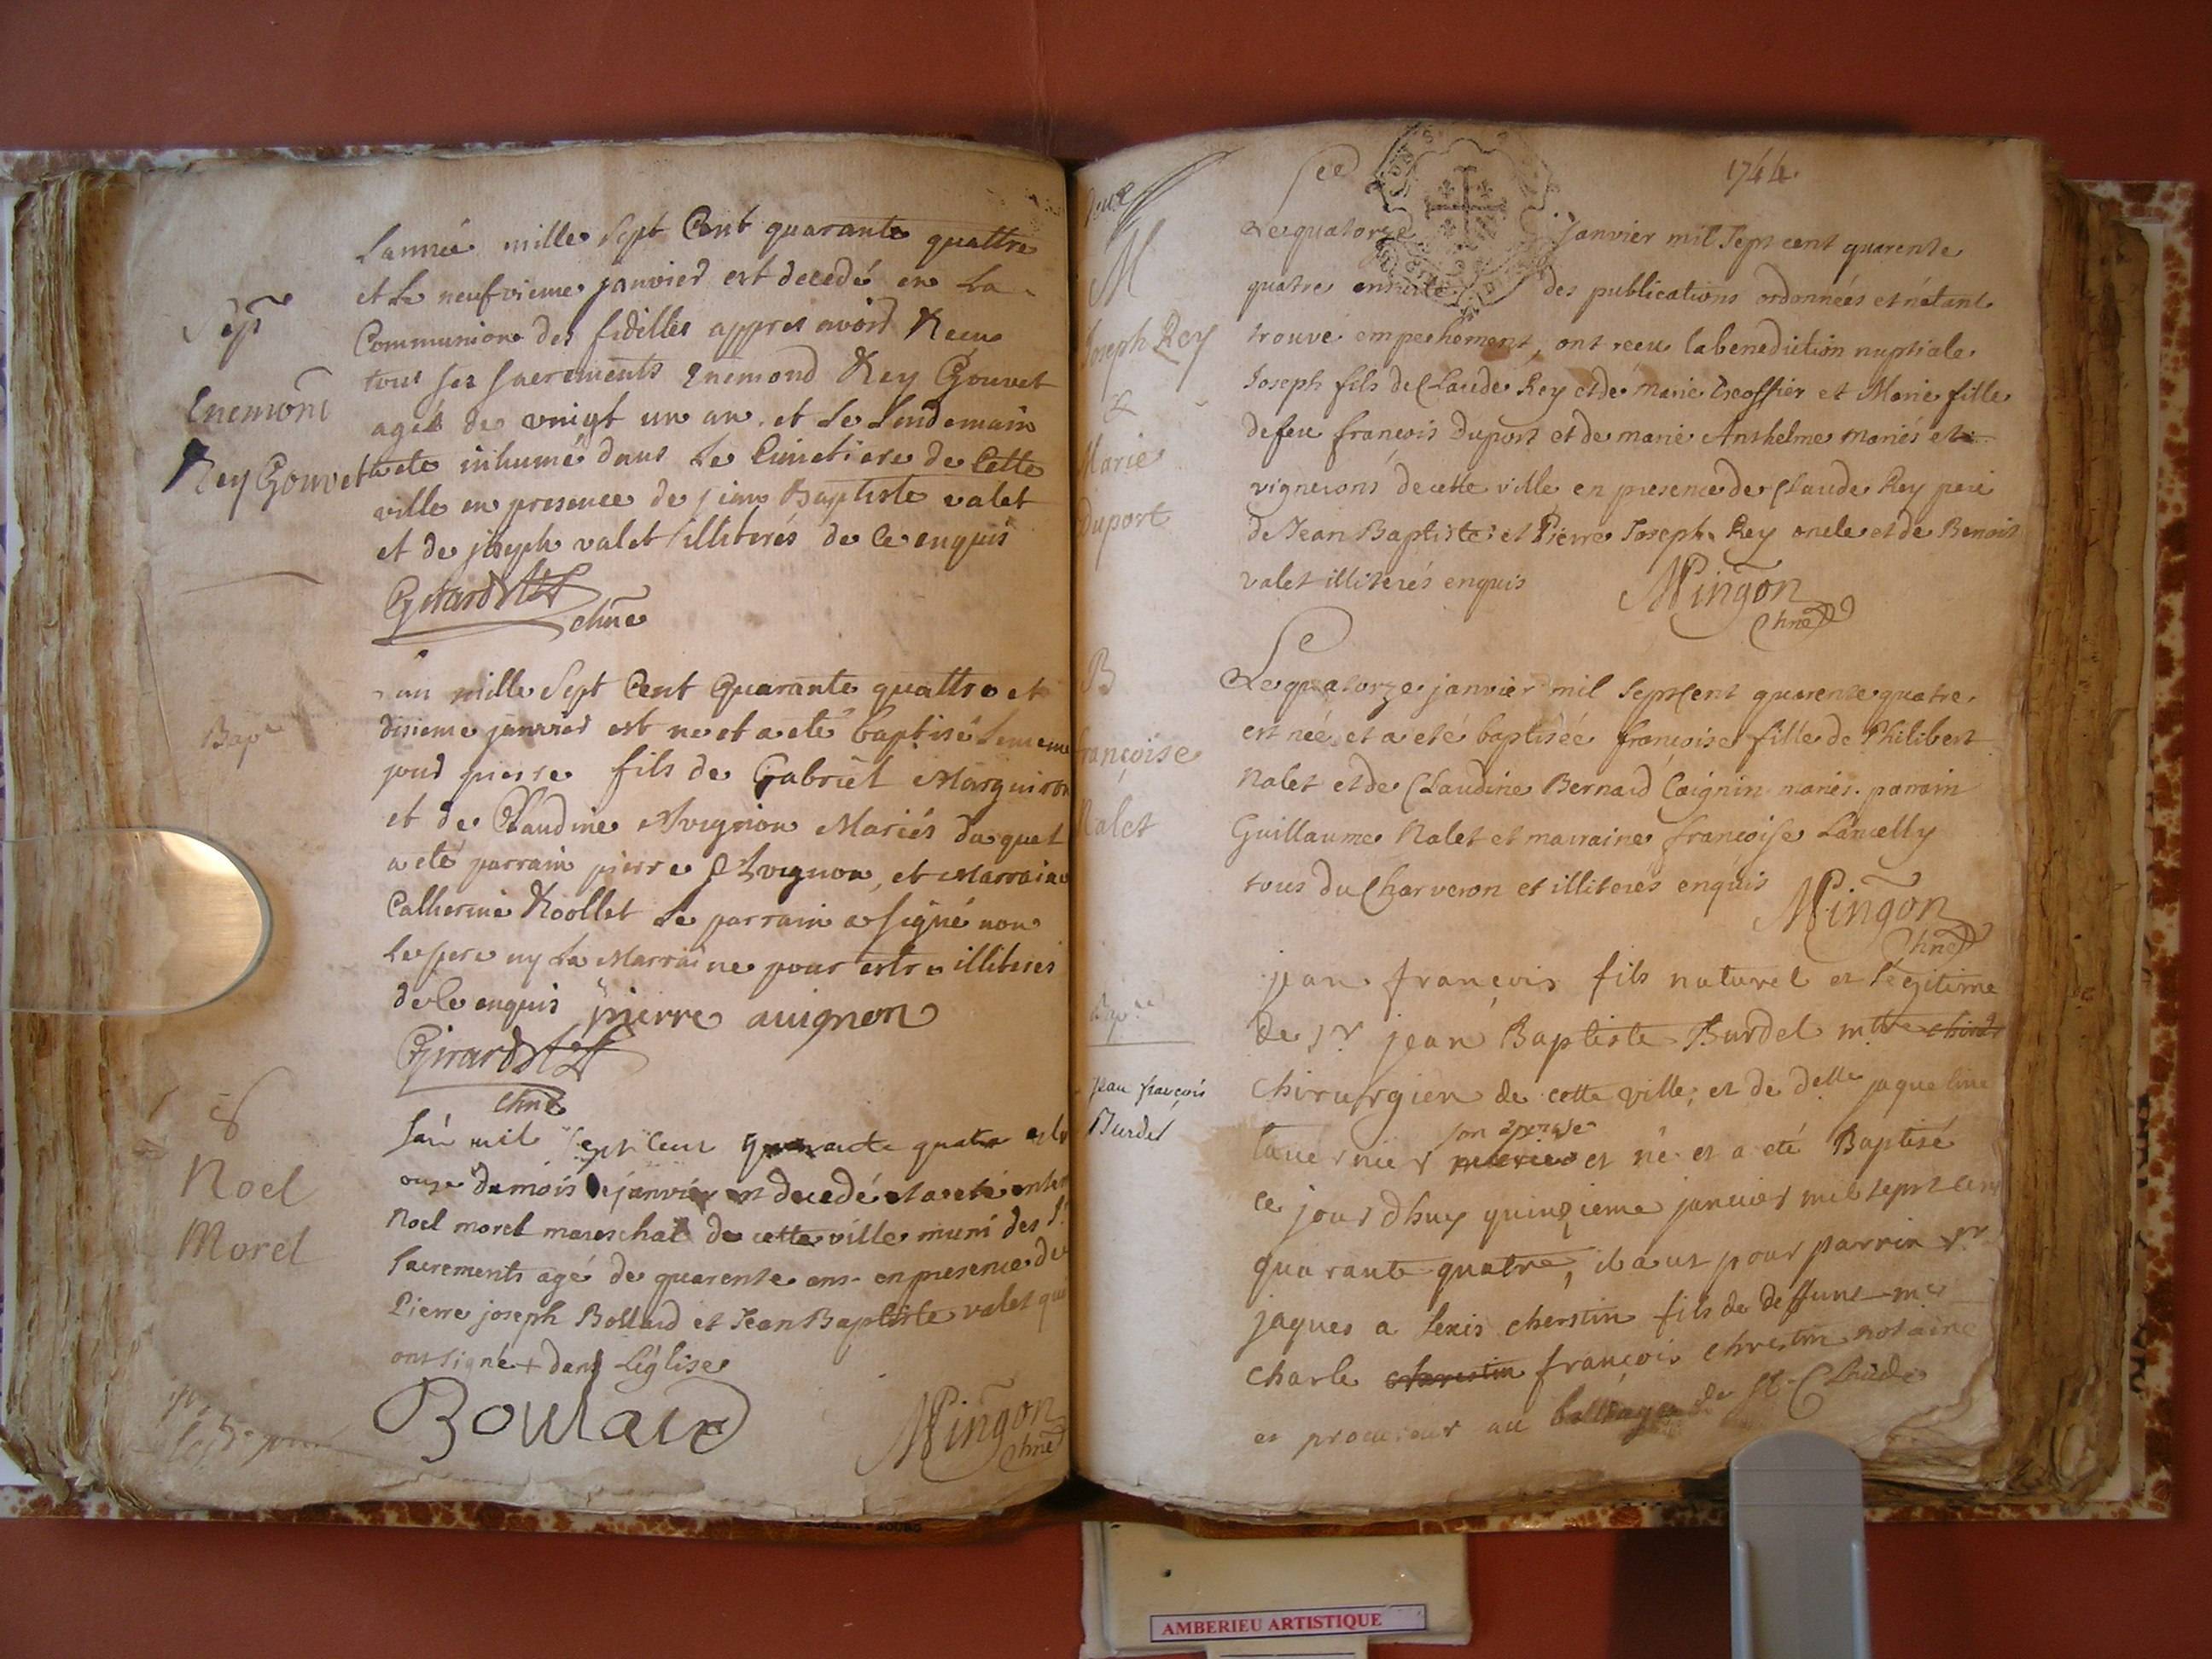 Sep.re
Enemond
Rey Gouvet
L'année mille sept Cent quarante quattre
et Le neufvieme janvier est decedé en La
Communion des fidelles appres avoir Receu
tous ses sacrements Enemond Rey Gouvet
agé de vingt un an. et Le Lendemain
a ete inhumé dans Le Cimetiere de Cette
ville en presence de jean Baptiste valet
et de joseph valet illiterés de Ce enquis
Girard
chne
Bap.e
an mille Sept Cent Quarante quattre et
disieme janvier est ne et a eté baptisé Le meme
jour pierre fils de Gabriel Marguiron
et de Claudine Avignon Mariés duquel
a eté parrain pierre Avignon, et Marraine
Catherine Roollet Le parrain a signé non
Le pere ny La Marraine pour estre illiteres
de Ce enquis pierre auignon
Girard
chne
S
Noel
Morel
L'an mil sept cent quarante quatre et le
onze du mois de janvier est decedé et a eté enter
Noel morel mareschal de cette ville muni des S.
Sacrements agé de quarente ans en presence de
Pierre joseph Bollard et Jean Baptiste valet qui
ont signé + dans L'église
Boulard
Mingon
Chne
1744.
M
Joseph Rey
&
Marie
Duport
Le quatorze janvier mil sept cent quarente
quatre ensuite des publications ordonnées et n'étant
trouvé empechement, ont receu la benediction nuptiale
Joseph fils de Claude Rey et de Marie Escoffier et Marie fille
de feu françois Duport et de marie Anthelme mariés et
vignerons de cette ville en presence de Claude Rey pere
de Jean Baptiste et Pierre Joseph Rey oncle et de Benoit
valet illiterés enquis Mingon
Chne
B
françoise
Nalet
Le quatorze janvier mil sept Cent quarente quatre
est née et a eté baptisée françoise fille de Philibert
Nalet et de Claudine Bernard Coignin mariés. parrain
Guillaume Nalet et marraine françoise Lancelly
tous du Charveron et illiterés enquis Mingon
Chne
Bap.e
Jean françois
Burdel
jean françois fils naturel et légitime
de sr jean Baptiste Burdel mtre
chirurgien de cette ville, et de delle jaqueline
son epouse
tauernier et né et a eté Baptisé
ce jour d'huy quinzieme janvier mil sept cent
quarante quatre, il a ut pour parrin sr
jaques a lexis cherstin fils de deffunt me
charle françois chrestin notaire
et procureur au balliage de St Claude
AMBERIEU ARTISTIQUE